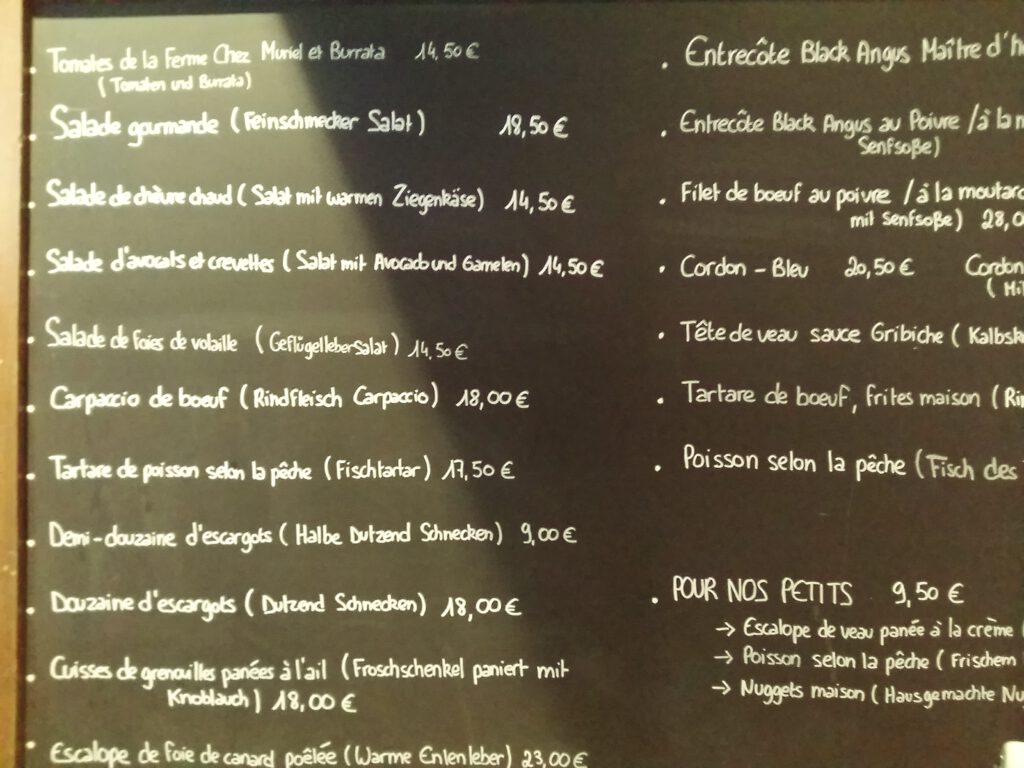 . Tomates de la Ferme Chez Muriel et Burrata 14,50 €
(Tomaten und Burrata)
. Salade gourmande (Feinschmecker Salat) 18,50 €
. Salade de chèvre chaud (Salat mit warmen Ziegenkäse) 14,50 €
. Salade d'avocats et crevettes (Salat mit Avocado und Garnelen) 14,50 €
. Salade de foies de volaille (Geflügelleber Salat) 14,50 €
. Carpaccio de boeuf (Rindfleisch Carpaccio) 18,00 €
. Tartare de poisson selon la pêche (Fischtartar) 17,50 €
. Demi-douzaine d'escargots (Halbe Dutzend Schnecken) 9,00 €
. Douzaine d'escargots (Dutzend Schnecken) 18,00 €
. Cuisses de grenouilles panées à l'ail (Froschschenkel paniert mit
Knoblauch) 18,00 €
. Escalope de foie de canard poêlée (Warme Entenleber) 23,00 €
. Entrecôte Black Angus Maître d'h
. Entrecôte Black Angus au Poivre / à la m
Senfsoße)
. Filet de boeuf au poivre / à la moutard
mit Senfsoße) 28,0
. Cordon-Bleu 20,50 € Cordon
(Mi
. Tête de veau sauce Gribiche (Kalbsk
. Tartare de boeuf, frites maison (Rin
. Poisson selon la pêche (Fisch des
. POUR NOS PETITS 9,50 €
→ Escalope de veau panée à la crème (
→ Poisson selon la pêche (Frischem
→ Nuggets maison (Hausgemachte Nu